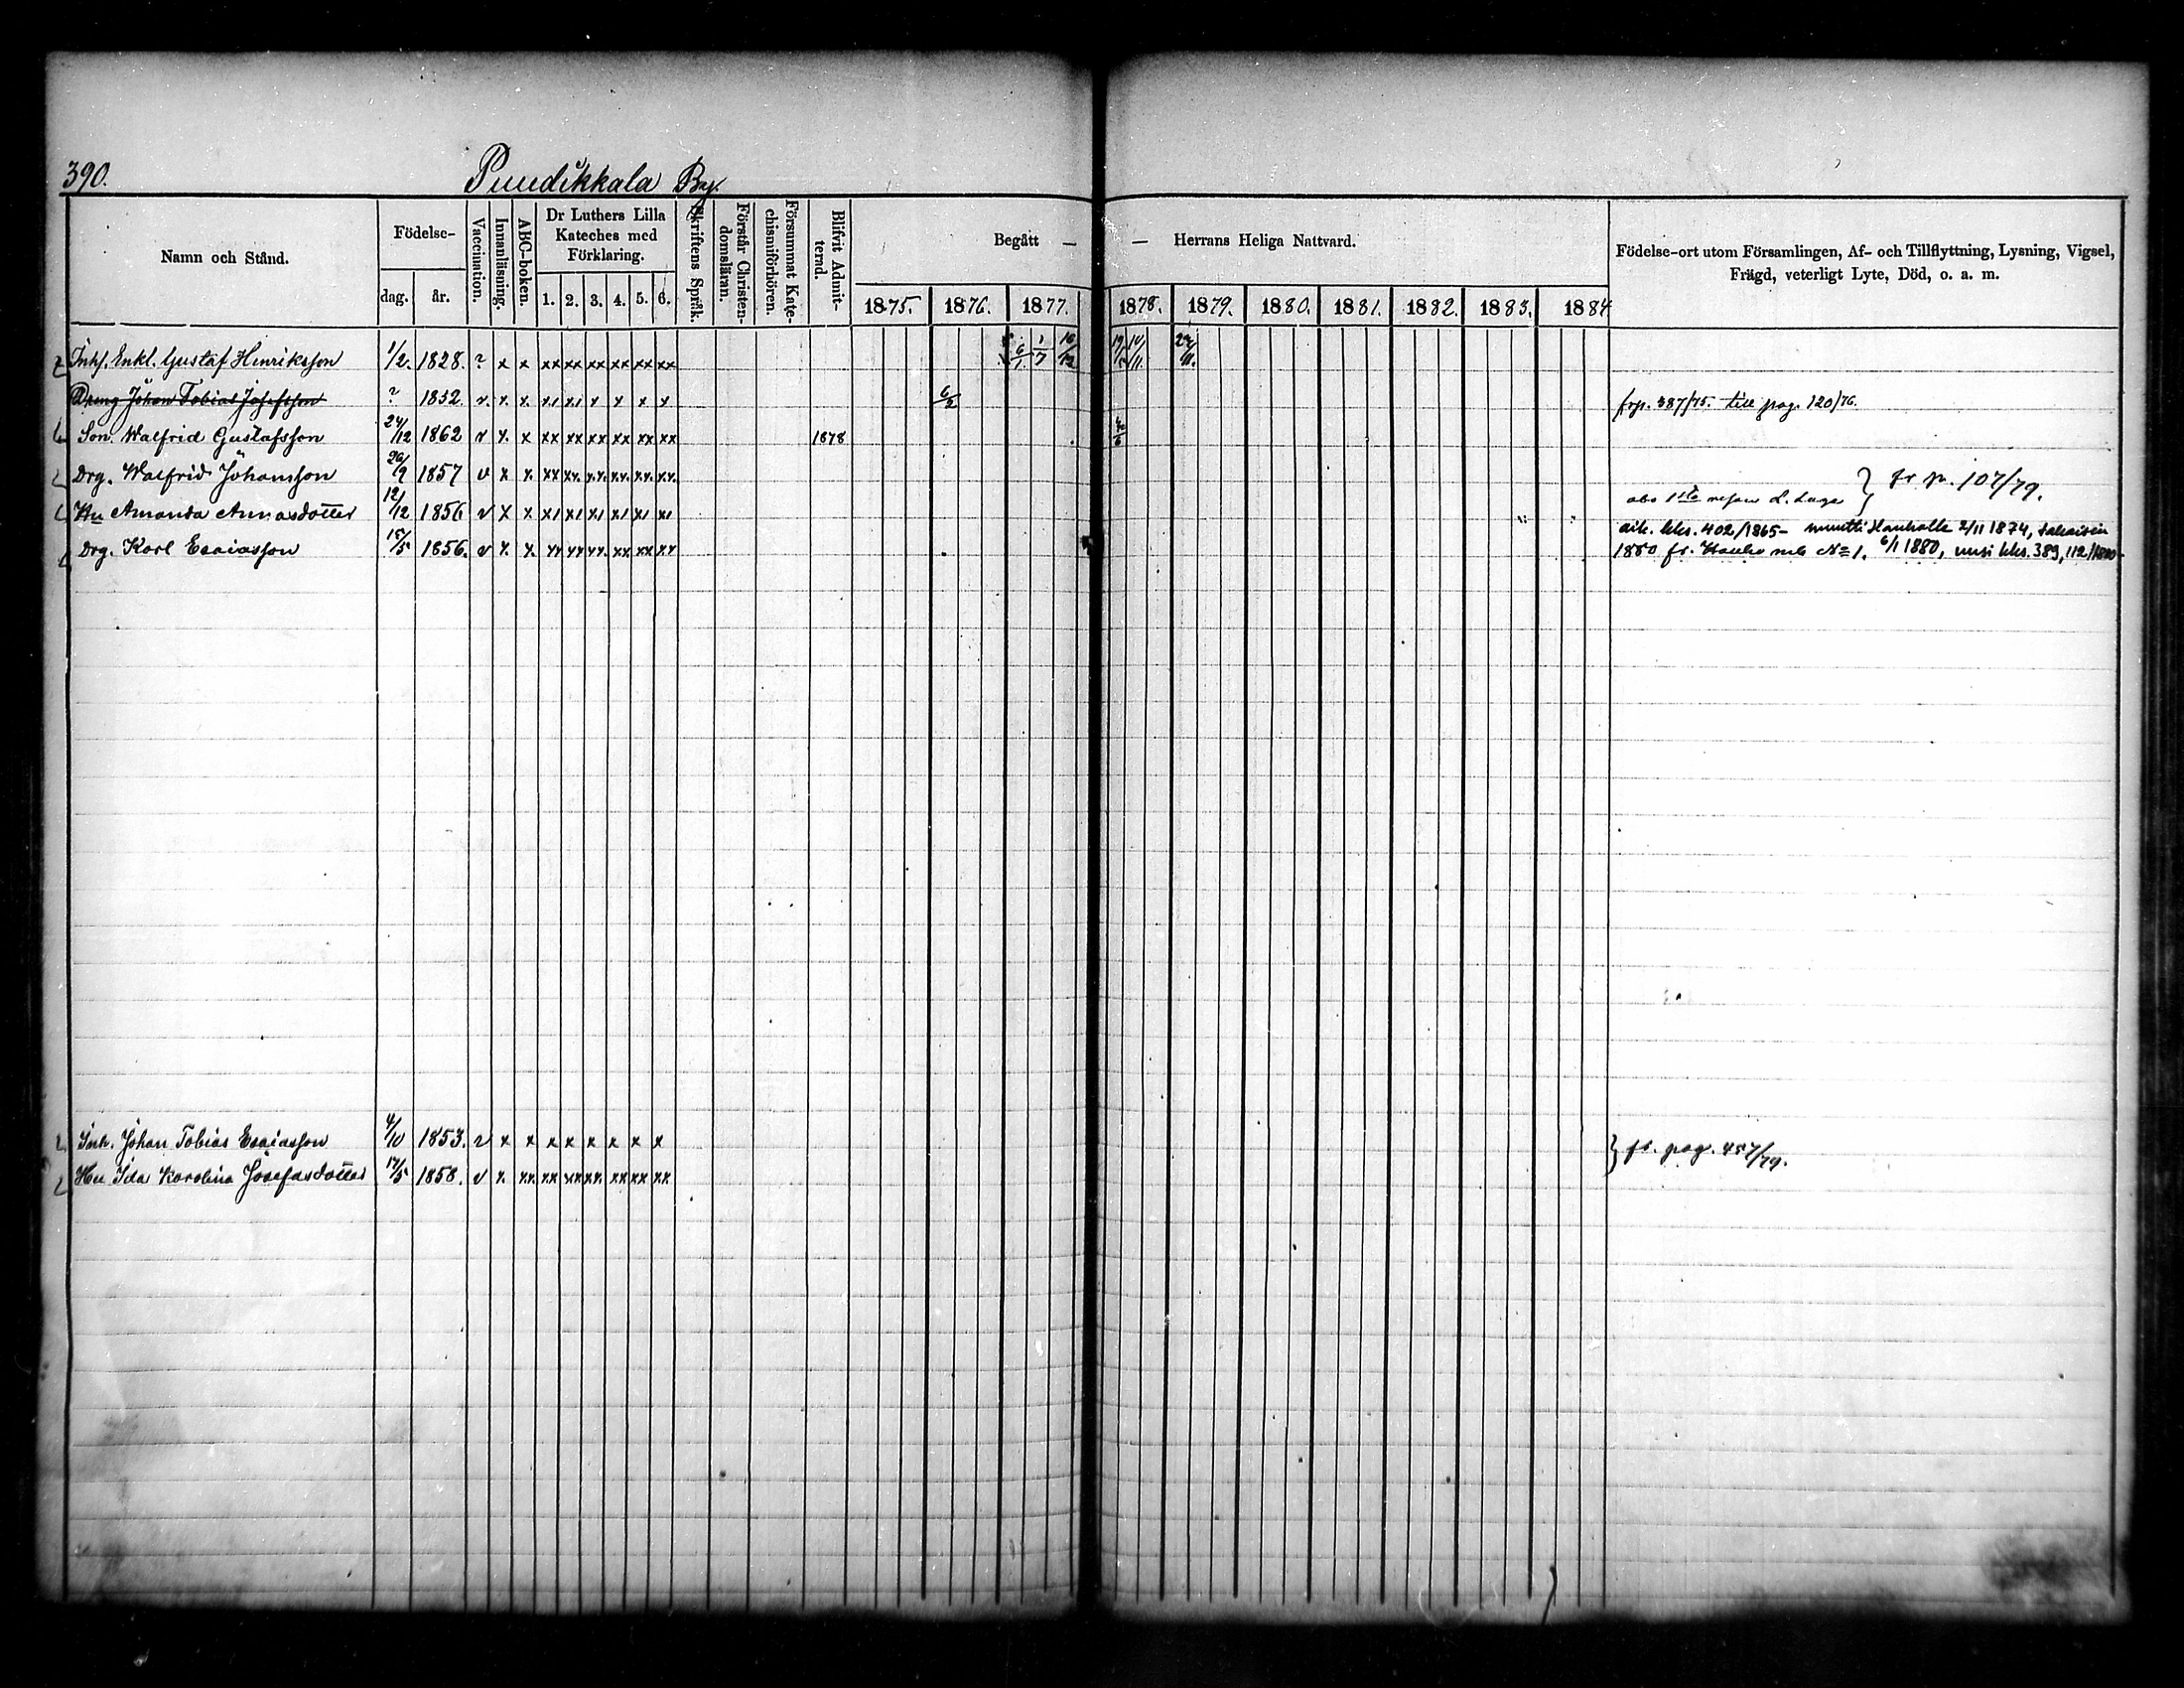 390. Puudikkala By.
Namn och Stånd. Födelse- dag. år. Vaccination. Innanläsning. ABC-boken. Dr Luthers Lilla Kateches med Förklaring. 1. 2. 3. 4. 5. 6. Skriftens Språk. Förstår Christen-domsläran. Försummat Kate-chismiförhören. Blifvit Admit-terad. Begått — — Herrans Heliga Nattvard. Födelse-ort utom Församlingen, Af- och Tillflyttning, Lysning, Vigsel, Frägd, veterligt Lyte, Död, o. a. m.
1875. 1876. 1877. 1878. 1879. 1880. 1881. 1882. 1883. 1884
Inhs. Enkl. Gustaf Henriksson 1/2 1828. ? x x xx xx xx xx xx xx 6/1 1/7 16/12
Dreng Johan Tobias Josefsson ? 1852. v. x. x. x1 x1 x x x x 6/2 frp. 387/75. till pag. 120/76.
Son. Walfrid Gustafsson 24/12 1862 v x. x xx xx xx xx xx xx 1878
Drg. Walfrid Johansson 26/9 1857 v x x. xx xx. x.x. xx. xx. xx. } fr p. 107/79.
Hu Amanda Annasdotter 12/12 1856 v x x x1 x1 x1 x1 x1 x1
Drg. Karl Esaiasson 15/5 1856. v x. x. xx xx xx. xx xx xx aik. kks. 402/1865- muutti Hauholle 2/11 1874, takaisin
1880 fr. Hauho mb No 1. 6/1 1880, uusi kks. 389, 112/1880-
Inh. Johan Tobias Esaiasson 4/10 1853. v x x x x x x x x } fr. pag. 457/79.
Hu Ida Karolina Josefasdotter 17/5 1858. v x. xx. xx xx xx. xx xx xx